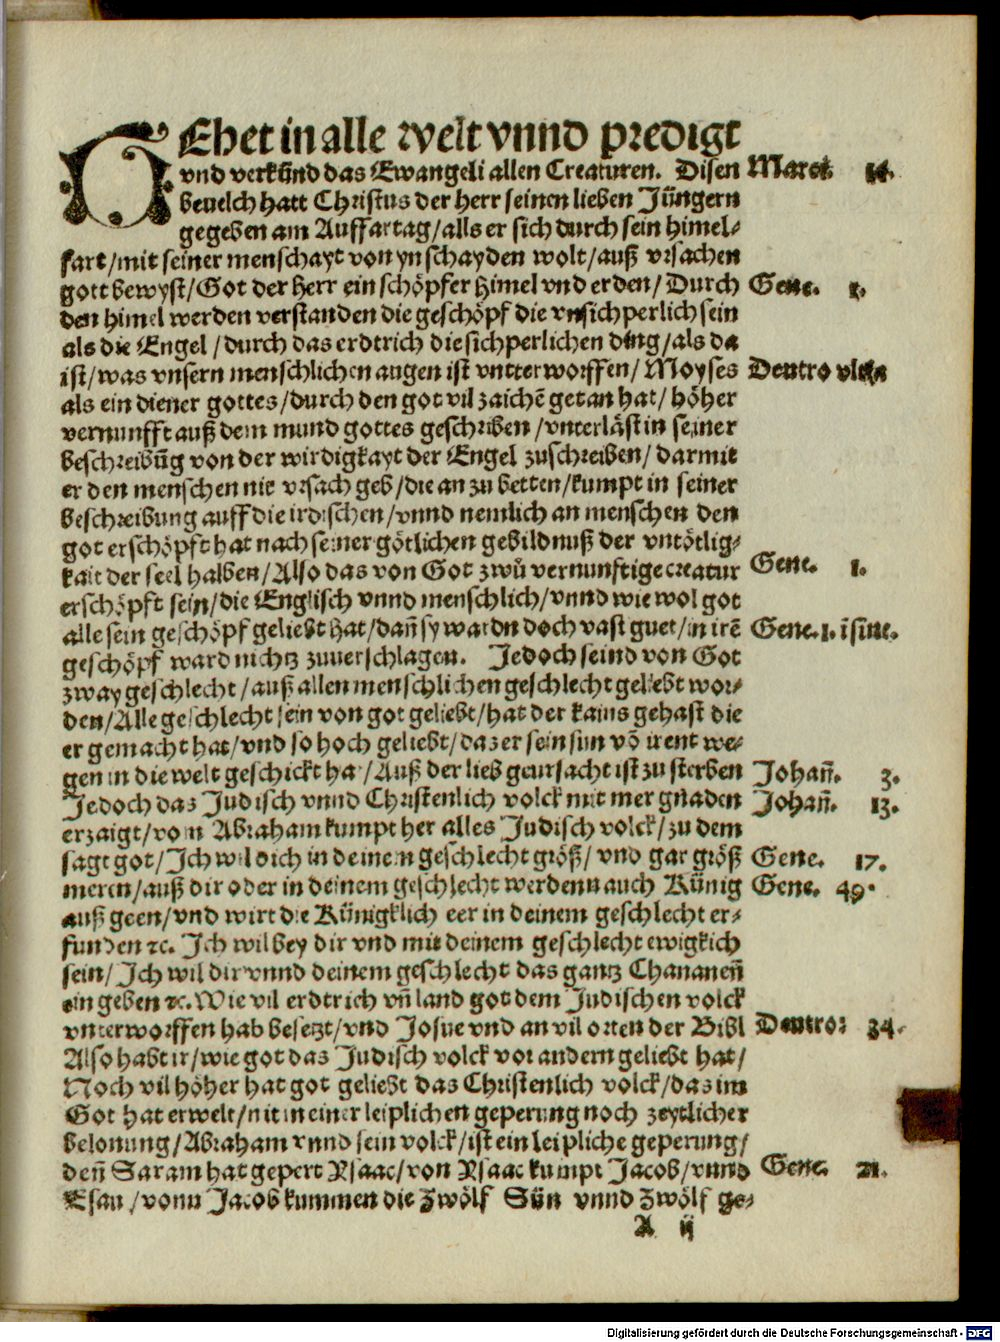 GEhet in alle welt vnnd predigt
vnd verkünd das Ewangeli allen Creaturen. Disen Marci 14.
beuelch hatt Christus der herr seinen lieben Jüngern
gegeben am Auffartag/alls er sich durch sein himel-
fart/mit seiner menschayt von yn schayden wolt/auß vrsachen
gott bewyst/Got der herr ein schöpfer himel vnd erden/Durch Gene. 1.
den himel werden verstanden die geschöpf die vnsichperlich sein
als die Engel/durch das erdtrich die sichperlichen ding/als da
ist/was vnsern menschlichen augen ist vntterworffen/Moyses Deutro
als ein diener gottes/durch den got vil zaichē getan hat/höher
vernunfft auß dem mund gottes geschriben/vnterläst in seiner
beschreibūg von der wirdigkayt der Engel zuschreiben/darmit
er den menschen nit vrsach geb/die an zu betten/kumpt in seiner
beschreibung auff die irdischen/vnnd nemlich an menschen den
got erschöpft hat nach seiner götlichen gebildnuß der vntötlig-
kait der seel halben/Also das von Got zwů vernunftige creatur Gene. 1.
erschöpft sein/die Englisch vnnd menschlich/vnnd wie wol got
alle sein geschöpf geliebt hat/dañ sy wardn doch vast guet/in irē Gene. 1. ī fine.
geschöpf ward nichtz zuuerschlagen. Jedoch seind von Got
zway geschlecht/auß allen menschlichen geschlecht geliebt wor-
den/Alle geschlecht sein von got geliebt/hat der kains gehast die
er gemacht hat/vnd so hoch geliebt/daz er sein sun vō irent we-
gen in die welt geschickt ha/Auß der lieb geursacht ist zu sterben Johañ. 3.
Jedoch das Judisch vnnd Christenlich volck mit mer gnaden Johañ. 13.
erzaigt/vom Abraham kumpt her alles Judisch volck/zu dem
sagt got/Ich wil dich in deinem geschlecht größ/vnd gar größ Gene. 17.
meren/auß dir oder in deinem geschlecht werdenn auch Künig Gene. 49.
auß geen/vnd wirt die Künigklich eer in deinem geschlecht er-
funden ꝛc. Ich wil bey dir vnd mit deinem geschlecht ewigkich
sein/Ich wil dir vnnd deinem geschlecht das gantz Chananeñ
ein geben ꝛc. Wie vil erdtrich vñ land got dem Judischen volck
vnterworffen hab besetzt/vnd Josue vnd an vil orten der Bibl Deutro: 34.
Also habt ir/wie got das Judisch volck vor andern geliebt hat/
Noch vil höher hat got geliebt das Christenlich volck/das im
Got hat erwelt/nit in einer leiplichen geperung noch zeytlicher
belonung/Abraham vnnd sein volck/ist ein leipliche geperung/
deñ Saram hat gepert Ysaac/von Ysaac kumpt Jacob/vnnd Gene. 21.
Esau/vonn Jacob kummen die Zwölf Sün vnnd Zwölf ge-
A ij
Digitalisierung gefördert durch die Deutsche Forschungsgemeinschaft - DFG